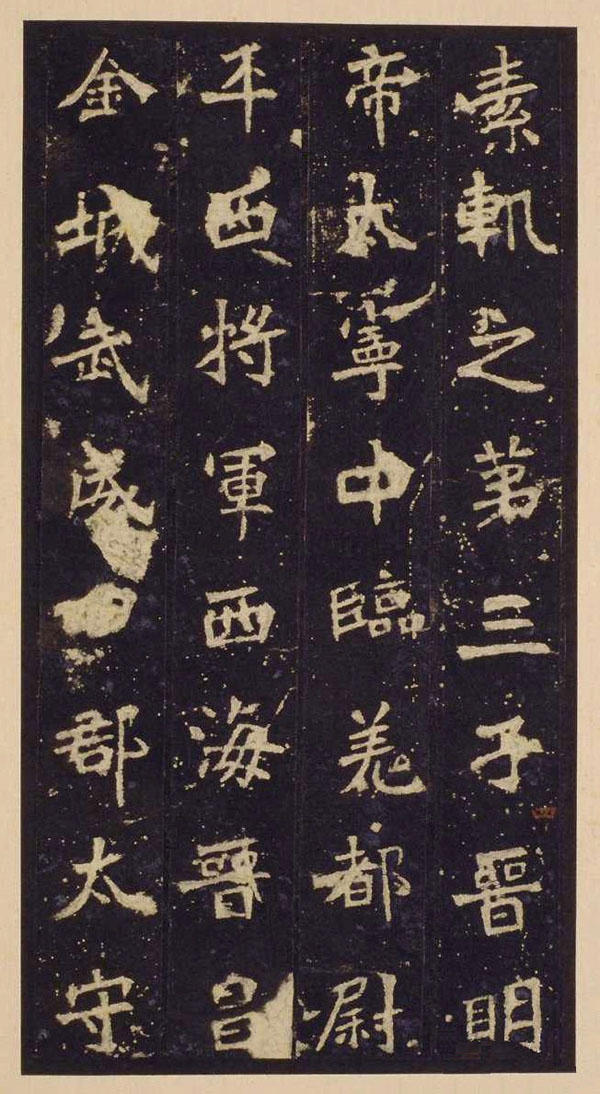 素軌之第三子晉明
帝太寧中臨羌都尉
平西將軍西海晉昌
金城武威四郡太守